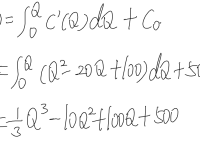 )=∫₀^Q C'(Q)dQ + C₀
=∫₀^Q (Q²-20Q+100)dQ+50
=⅓Q³-10Q²+100Q+500